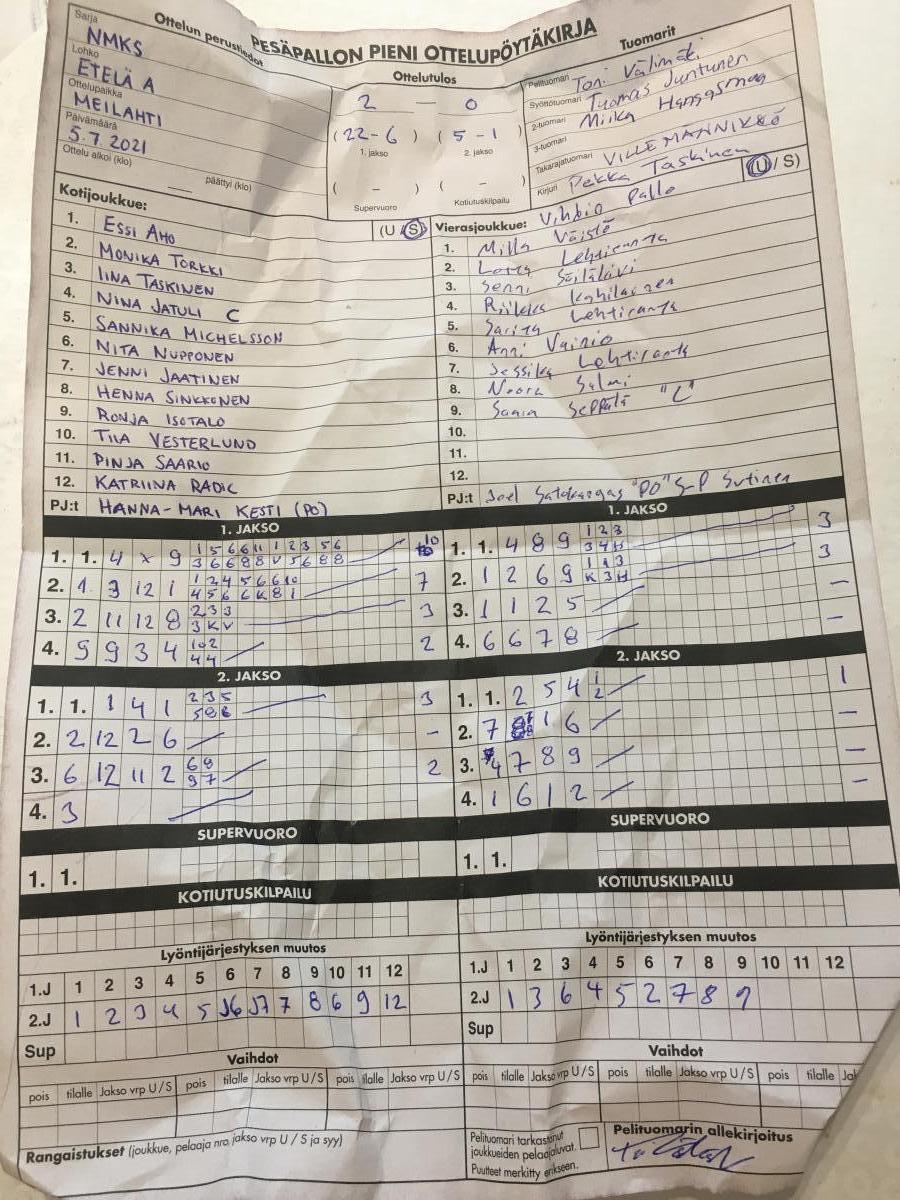 PESÄPALLON PIENI OTTELUPÖYTÄKIRJA
Ottelun perustiedot
Sarja
NMKS
Lohko
ETELÄ A
Ottelupaikka
MEILAHTI
Päivämäärä
5.7.2021
Ottelu alkoi (klo) päättyi (klo)
Ottelutulos
2 — 0
(22-6) (5-1)
1. jakso 2. jakso
( - ) ( - )
Supervuoro Kotiutuskilpailu
Tuomarit
Pelituomari Toni Välimäki
Syöttötuomari Tuomas Juntunen
2-tuomari Miika Hangasmaa
3-tuomari
Takarajatuomari VILLE MÄNNIKKÖ
Kirjuri Pekka Taskinen
Kotijoukkue: (U / S)
1. ESSI AHO
2. MONIKA TORKKI
3. IINA TASKINEN
4. NINA JATULI C
5. SANNIKA MICHELSSON
6. NITA NUPPONEN
7. JENNI JAATINEN
8. HENNA SINKKONEN
9. RONJA ISOTALO
10. TIIA VESTERLUND
11. PINJA SAARIO
12. KATRIINA RADIC
PJ:t HANNA-MARI KESTI (PO)
Vierasjoukkue: Vihdin Pallo (U / S)
1. Milla Väistö
2. Lotta Lehtiranta
3. Senni
4. Riikka Kohilainen
5. Sarita Lehtiranta
6. Anni Vainio
7. Jessika Lehtiranta
8. Noora Salmi
9. Sanna Seppälä "C"
10.
11.
12.
PJ:t Joel Satokangas "PO" S-P Sutinen
1. JAKSO
1. 1. 4 x 9 1 5 6 6 11 1 2 3 5 6 10
3 6 6 8 8 V 5 6 8 8
2. 1 3 12 1 1 2 4 5 6 6 10 7
4 5 6 6 K 8 1
3. 2 11 12 8 2 3 3 3
3 K V
4. 5 9 3 4 10 2 2
4 4
1. JAKSO
1. 1. 4 8 9 1 2 3 3
3 4 H
2. 1 2 6 9 1 1 3 3
K 3 H
3. 1 1 2 5 -
4. 6 6 7 8 -
2. JAKSO
1. 1. 1 4 1 2 3 5 3
5 8 6
2. 2 12 2 6 -
3. 6 12 11 2 6 8 2
9 7
4. 3
2. JAKSO
1. 1. 2 5 4 1 1
2
2. 7 1 6 -
3. 4 7 8 9 -
4. 1 6 1 2 -
SUPERVUORO
1. 1.
SUPERVUORO
1. 1.
KOTIUTUSKILPAILU
KOTIUTUSKILPAILU
Lyöntijärjestyksen muutos
1.J 1 2 3 4 5 6 7 8 9 10 11 12
2.J 1 2 3 4 5 J6 J7 7 8 6 9 12
Sup
Lyöntijärjestyksen muutos
1.J 1 2 3 4 5 6 7 8 9 10 11 12
2.J 1 3 6 4 5 2 7 8 9
Sup
Vaihdot
pois tilalle Jakso vrp U / S pois tilalle Jakso vrp U / S pois tilalle Jakso vrp U / S
Vaihdot
pois tilalle Jakso vrp U / S pois tilalle Jakso vrp U / S pois tilalle Jak
Rangaistukset (joukkue, pelaaja nro, jakso vrp U / S ja syy)
Pelituomari tarkastanut
joukkueiden pelaajaluvat.
Puutteet merkitty erikseen.
Pelituomarin allekirjoitus